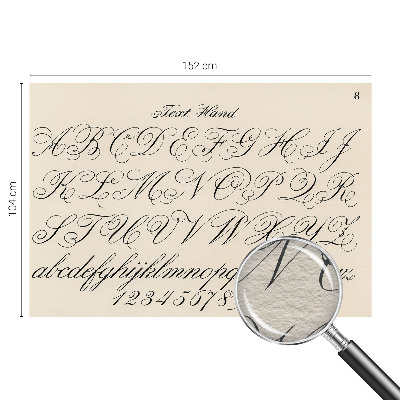 152 cm
104 cm
8
Text Hand
A B C D E F G H I J
K L M N O P Q R
S T U V W X Y Z
abcdefghijklmnopq
12345678